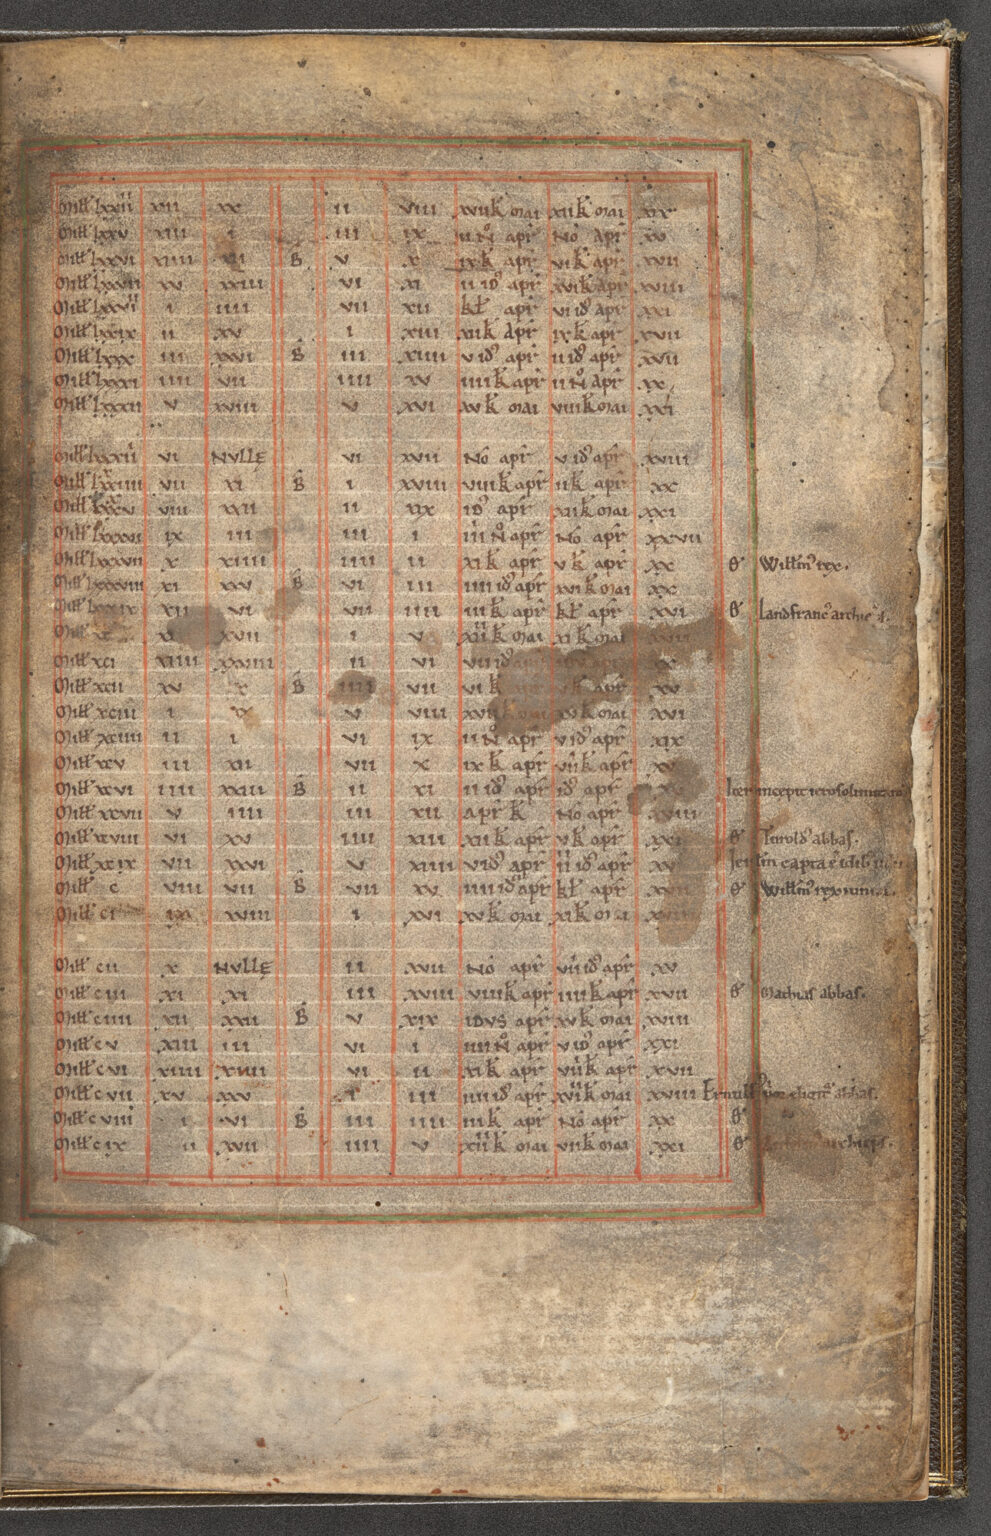 Mill̃ lxxiiii xii xx ii viii xviik̃ mai xiik̃ mai xix
Mill̃ lxxv xiii i iii ix ii Ñ apr̃ Nõ Apr̃ xv
Mill̃ lxxvi xiiii xii B v x ixk̃ apr̃ vi k̃ apr̃ xvii
Mill̃ lxxvii xv xxiii vi xi ii id̃ apr̃ xvik̃ apr̃ xviii
Mill̃ lxxviii i iiii vii xii kl̃ apr̃ vi id̃ apr̃ xxi
Mill̃ lxxix ii xv i xiii xiik̃ Apr̃ ixk̃ apr̃ xvii
Mill̃ lxxx iii xxvi B iii xiiii v id̃ apr̃ ii id̃ apr̃ xvii
Mill̃ lxxxi iiii vii iiii xv iiiik̃ apr̃ ii Ñ Apr̃ xx
Mill̃ lxxxii v xviii v xvi xvk̃ mai viiik̃ mai xxi
Mill̃ lxxxiii vi NVLLĘ vi xvii Nõ apr̃ v id̃ apr̃ xviii
Mill̃ lxxxiiii vii xi B i xviii viiik̃ apr̃ iik̃ apr̃ xx
Mill̃ lxxxv viii xxii ii xix id̃ apr̃ xiik̃ mai xxi
Mill̃ lxxxvi ix iii iii i iiii Ñ apr̃ Nõ apr̃ xxvii
Mill̃ lxxxvii x xiiii iiii ii xik̃ apr̃ vk̃ apr̃ xx Ø Will̃m̃ rex.
Mill̃ lxxxviii xi xxv B vi iii iiii id̃ apr̃ xvik̃ mai xx
Mill̃ lxxxix xii vi vii iiii iiik̃ apr̃ kl̃ apr̃ xvi Ø landfranc̃ archiep̃s.
Mill̃ xc xvii i v xiiik̃ mai xik̃ mai
Mill̃ xci xiiii xxviiii ii vi viii id̃ xx
Mill̃ xcii xv x B iiii vii vi k̃ vk̃ apr̃ xv
Mill̃ xciii i v viii xviik̃ mai xvk̃ mai xvi
Mill̃ xciiii ii i vi ix ii Ñ apr̃ v id̃ apr̃ xix
Mill̃ xcv iii xii vii x ixk̃ apr̃ viiik̃ apr̃ xv
Mill̃ xcvi iiii xxiii B ii xi ii id̃ apr̃ id̃ apr̃ Iter incepit
Mill̃ xcvii v iiii iii xii Apr̃ K Nõ apr̃ xviii
Mill̃ xcviii vi xv iiii xiii xiik̃ apr̃ vk̃ apr̃ Ø Turold̃ abbas.
Mill̃ xcix vii xxvi v xiiii v id̃ apr̃ iiii id̃ apr̃ xv capta
Mill̃ c viii vii B vii xv iiii id̃ apr̃ kl̃ apr̃ Ø Will̃m̃ rex
Mill̃ ci ix xviii i xvi xvk̃ mai xik̃ mai
Mill̃ cii x NVLLĘ ii xvii Nõ apr̃ viii id̃ apr̃ xv
Mill̃ ciii xi xi iii xviii viiik̃ apr̃ iiiik̃ apr̃ xvii Ø Mathias abbas.
Mill̃ ciiii xii xxii B v xix idus apr̃ xvk̃ mai xviii
Mill̃ cv xiii iii vi i iiii Ñ apr̃ v id̃ apr̃ xxi
Mill̃ cvi xiiii xiiii vi ii xik̃ apr̃ viiik̃ apr̃ xvii
Mill̃ cvii xv xxv i iii iiii id̃ apr̃ xviiik̃ mai xviii Ernulf̃ abbas.
Mill̃ cviii i vi B iii iiii iiik̃ apr̃ Nõ apr̃ xx Ø
Mill̃ cix ii xvii iiii v xiiiik̃ mai viik̃ mai xxi Ø archiep̃s.